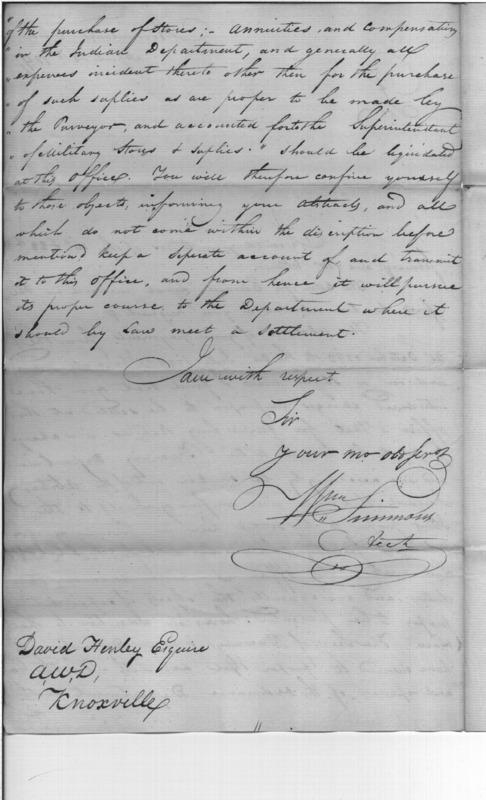 " of the purchase of stores;- annuities, and compensation
" in the Indian Department, and generally all
" expenses incident thereto other then for the purchase
" of such suplies as are proper to be made by
" the Purveyor, and accounted for to the Superintendent
" of Military Stores & suplies." should be liquidated
at this Office. You will therefore confine yourself
to those objects, in forming your abstracts, and all
which do not come within the discription before
mention'd keep a seperate account of and transmit
it to this office, and from hence it will pursue
its proper course to the Department where it
should by Law meet a settlement.
I am with respect
Sir
your mo ob serv
Wm Simmons
Acct
David Henley Esquire
A,W,D,
Knoxville